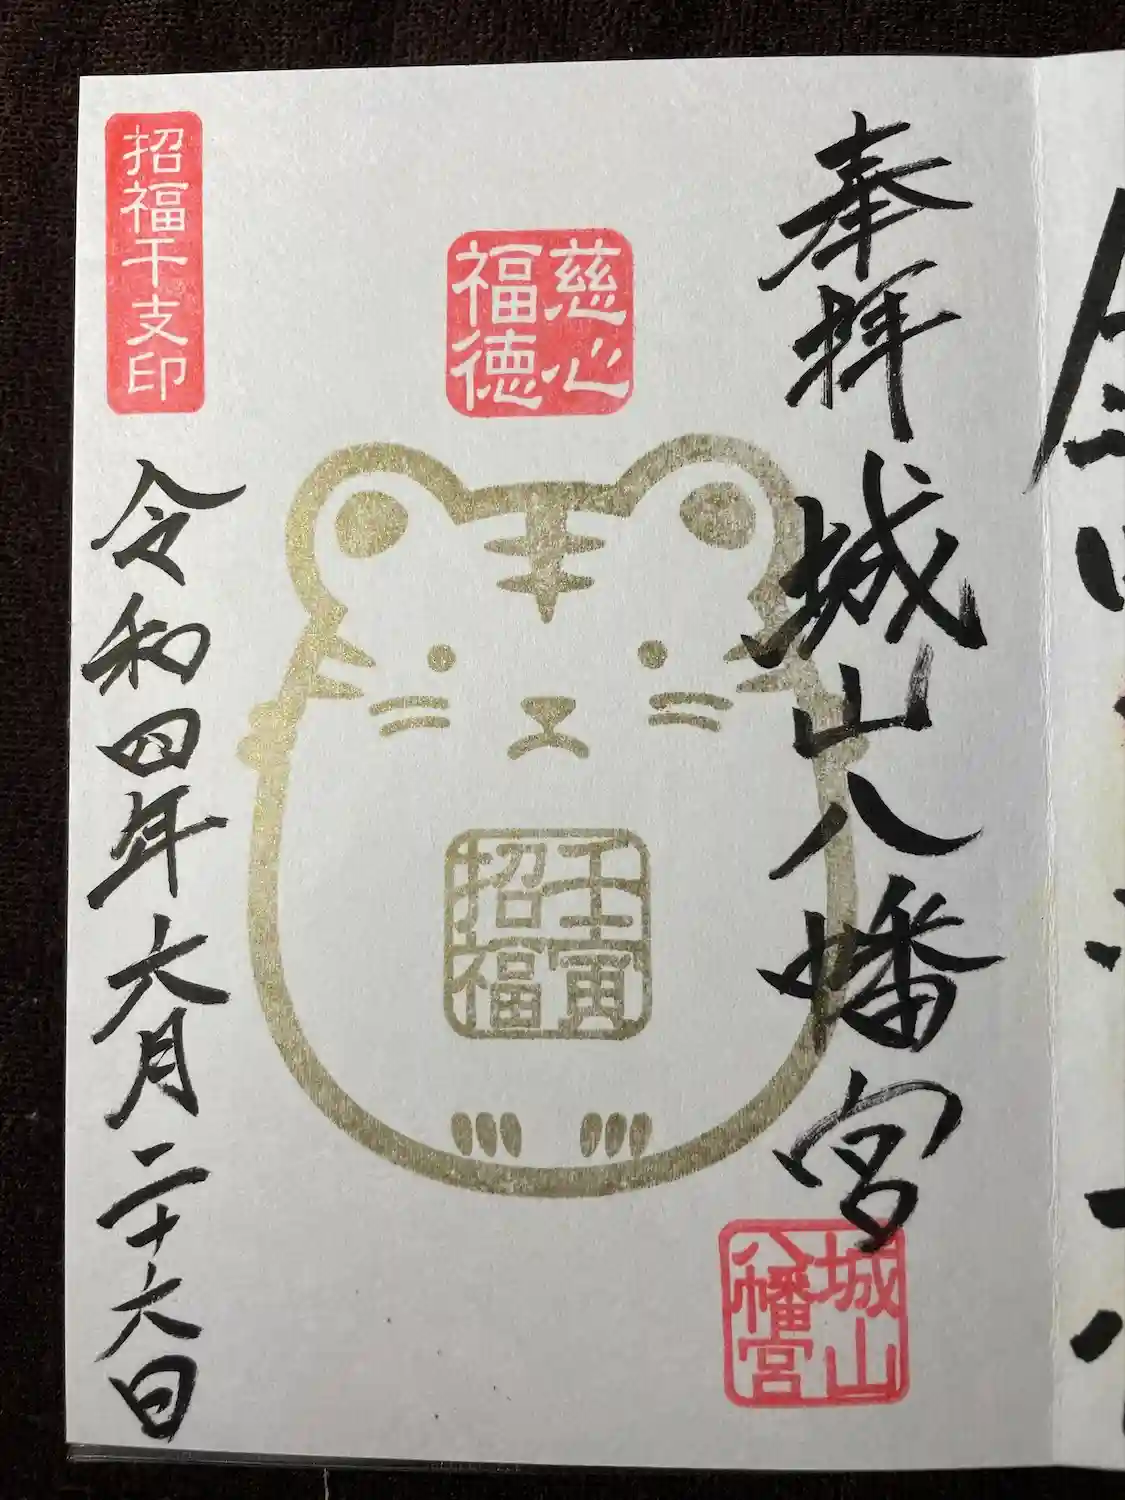 奉拝
城山八幡宮
城山
八幡宮
慈心
福徳
壬寅
招福
招福干支印
令和四年六月二十六日